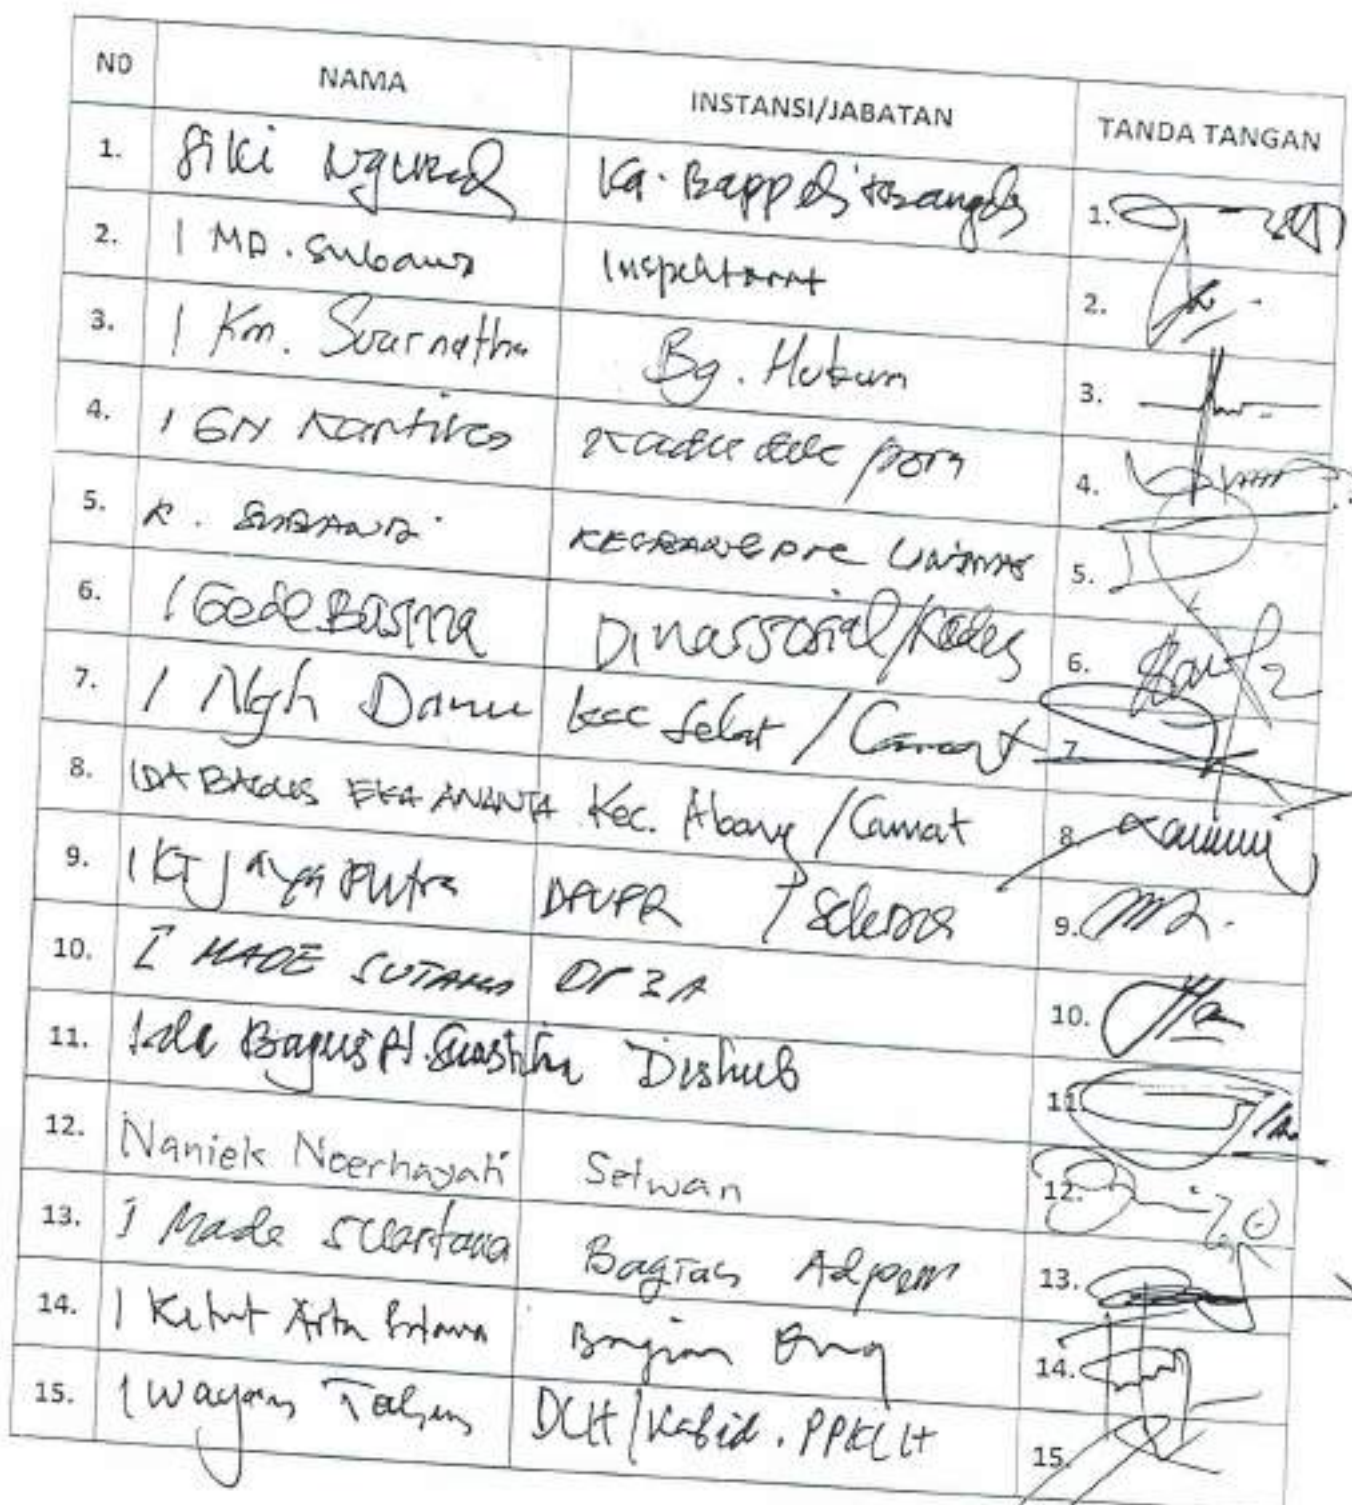 NO NAMA INSTANSI/JABATAN TANDA TANGAN
1. Siki Ngurah Ka. Bappelitbangda 1.
2. I MD. Subawa Inspektorat 2.
3. I Km. Suarnatha Bg. Hukum 3.
4. I GN Kartika 4.
5. K. 5.
6. I Gede Basma Dinas sosial/Kadis 6.
7. I Ngh Danu Kec Selat / Camat 7.
8. IDA BAGUS EKA ANANTA Kec. Abang / Camat 8.
9. I KT Jaya Putra DPUPR / 9.
10. I MADE SUTAMA 10.
11. Ida Bagus Pt. Suastika Dishub 11.
12. Naniek Noerhayati Setwan 12.
13. I Made Suartana Bagian Adpem 13.
14. I Ketut Arta Bagian 14.
15. I Wayan DLH/Kabid. PPKLH 15.